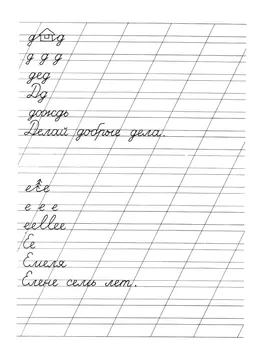 д д
д д д
дед
Дд
дождь
Делай добрые дела.
е е
е е е
ееllее
Ее
Емеля
Елене семь лет.